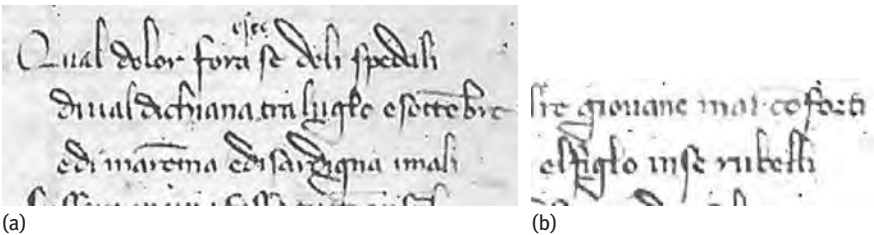 Qual dolor fora se deli spedali
diualdichiana tra luglo esettēbre
edi marēma edisardigna imali
(a)
giouane mai cōforti
elfiglo inse rubelli
(b)